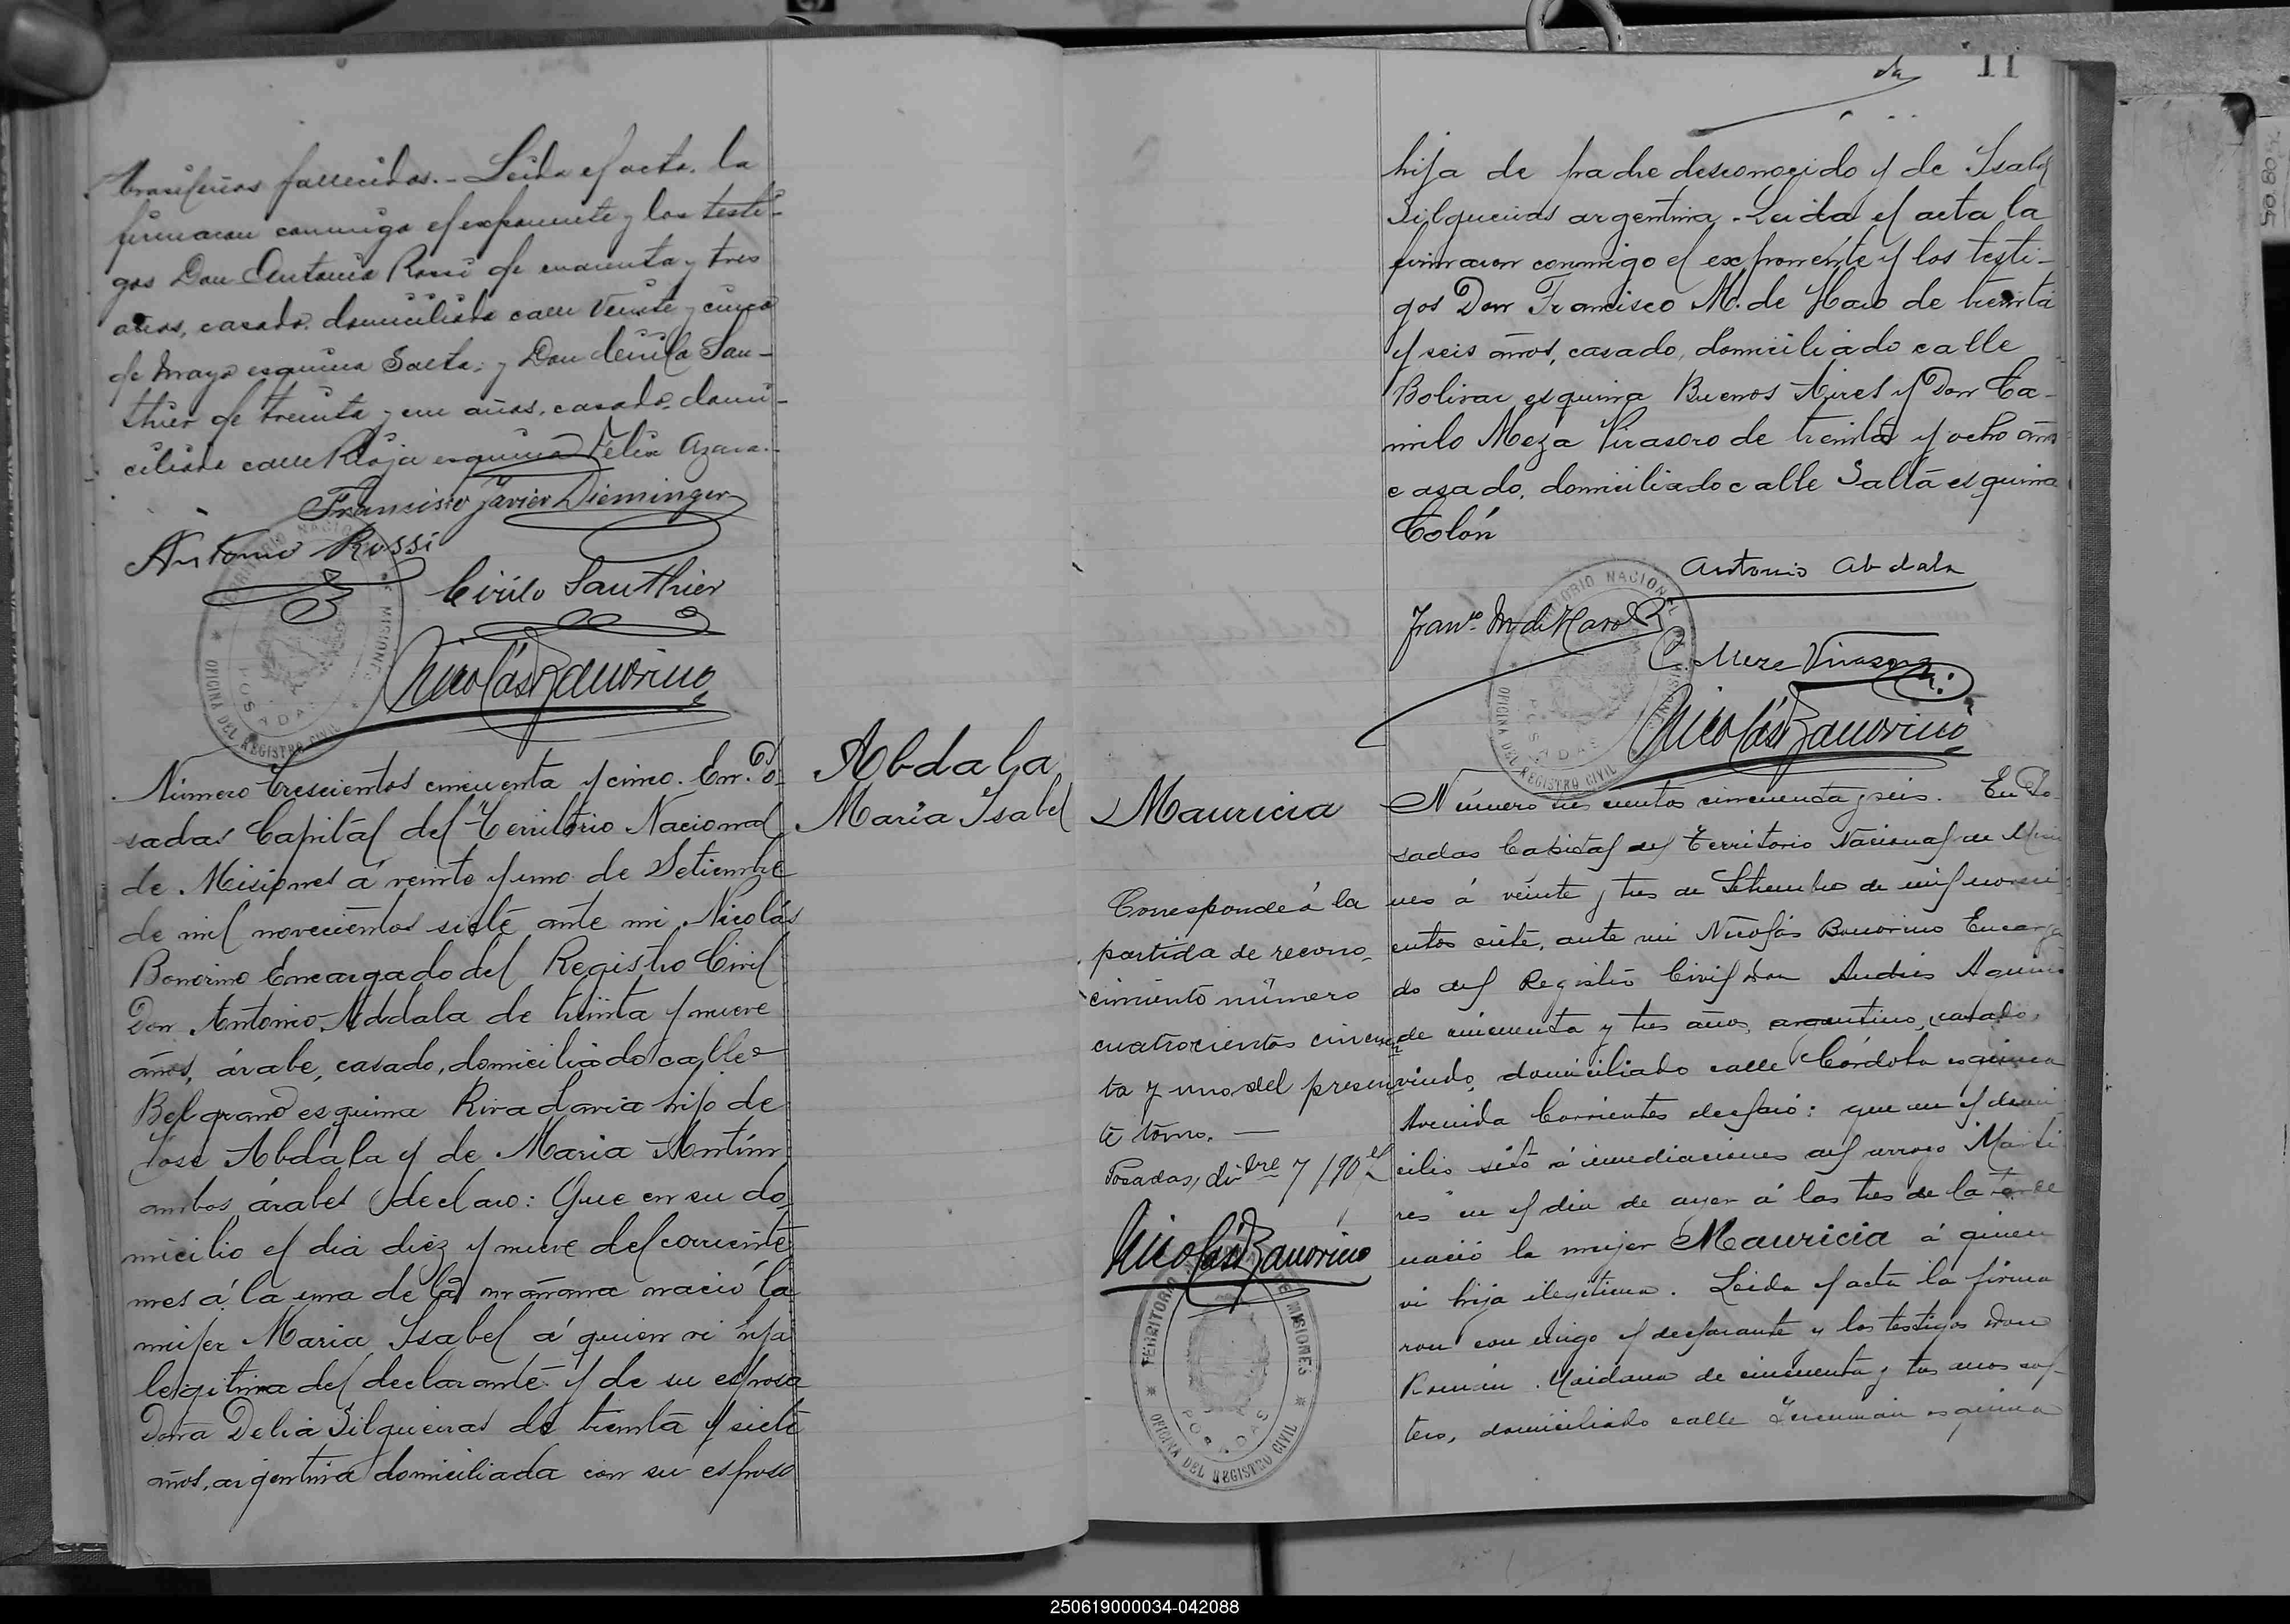 brasileños fallecidos.- Leida el acta, la
firmaron conmigo el exponente y los testi-
gos Don Antonio Rossi de cuarenta y tres
años, casado, domiciliado calle Veinte y cinco
de Mayo esquina Salta; y Don Cirilo Sau-
thier de treinta y un años, casado, domi-
ciliado calle Rioja esquina Felix Azara.-
Francisco Javier Dieminger
Antonio Rossi
Cirilo Sauthier
Nicolás Bonorino
TERRITORIO NACIONAL DE MISIONES
POSADAS
OFICINA DEL REGISTRO CIVIL
Abdala
María Isabel
Número trescientos cincuenta y cinco. En Po-
sadas Capital del Territorio Nacional
de Misiones á veinte y uno de Setiembre
de mil novecientos siete ante mi Nicolás
Bonorino Encargado del Registro Civil
Don Antonio Abdala de treinta y nueve
años, árabe, casado, domiciliado calle
Belgrano esquina Rivadavia hijo de
José Abdala y de Maria Antún
ambos árabes declaro: Que en su do-
micilio el dia diez y nueve del corriente
mes á la una de la mañana nació la
mujer Maria Isabel á quien vi hija
legitima del declarante y de su esposa
Doña Delia Silqueiras de treinta y siete
años, argentina domiciliada con su esposo
11
hija de padre desconocido y de Isabel
Silqueiras argentina. Leida el acta la
firmaron conmigo el exponente y los testi-
gos Don Francisco M. de Haro de treinta
y seis años, casado, domiciliado calle
Bolivar esquina Buenos Aires y Don Ca-
milo Meza Virasoro de treinta y ocho años
casado, domiciliado calle Salta esquina
Colón
Antonio Abdala
Franco. M. de Haro
C. Meza Virasoro
Nicolás Bonorino
TERRITORIO NACIONAL DE MISIONES
POSADAS
OFICINA DEL REGISTRO CIVIL
Mauricia
Corresponde á la
partida de recono-
cimiento número
cuatrocientos cincuen
ta y uno del presen
te tomo. —
Posadas, dibre 7/90
Nicolás Bonorino
TERRITORIO DE MISIONES
POSADAS
OFICINA DEL REGISTRO CIVIL
Número tres cientos cincuenta y seis. En Po-
sadas Capital del Territorio Nacional de Misio
nes á veinte y tres de Setiembre de mil noveci
entos siete, ante mi Nicolás Bonorino Encarga
do del Registro Civil Don Andrés Aquino
de cincuenta y tres años, argentino, casado,
viudo, domiciliado calle Córdoba esquina
Avenida Corrientes declaró: que en el domi
cilio sito á inmediaciones del arroyo Marti
res en el dia de ayer á las tres de la tarde
nació la mujer Mauricia á quien
vi hija ilegitima. Leida el acta la firma
ron conmigo el declarante y los testigos Don
Román Maidana de cincuenta y tres años sol-
tero, domiciliado calle Tucumán esquina
250619000034-042088